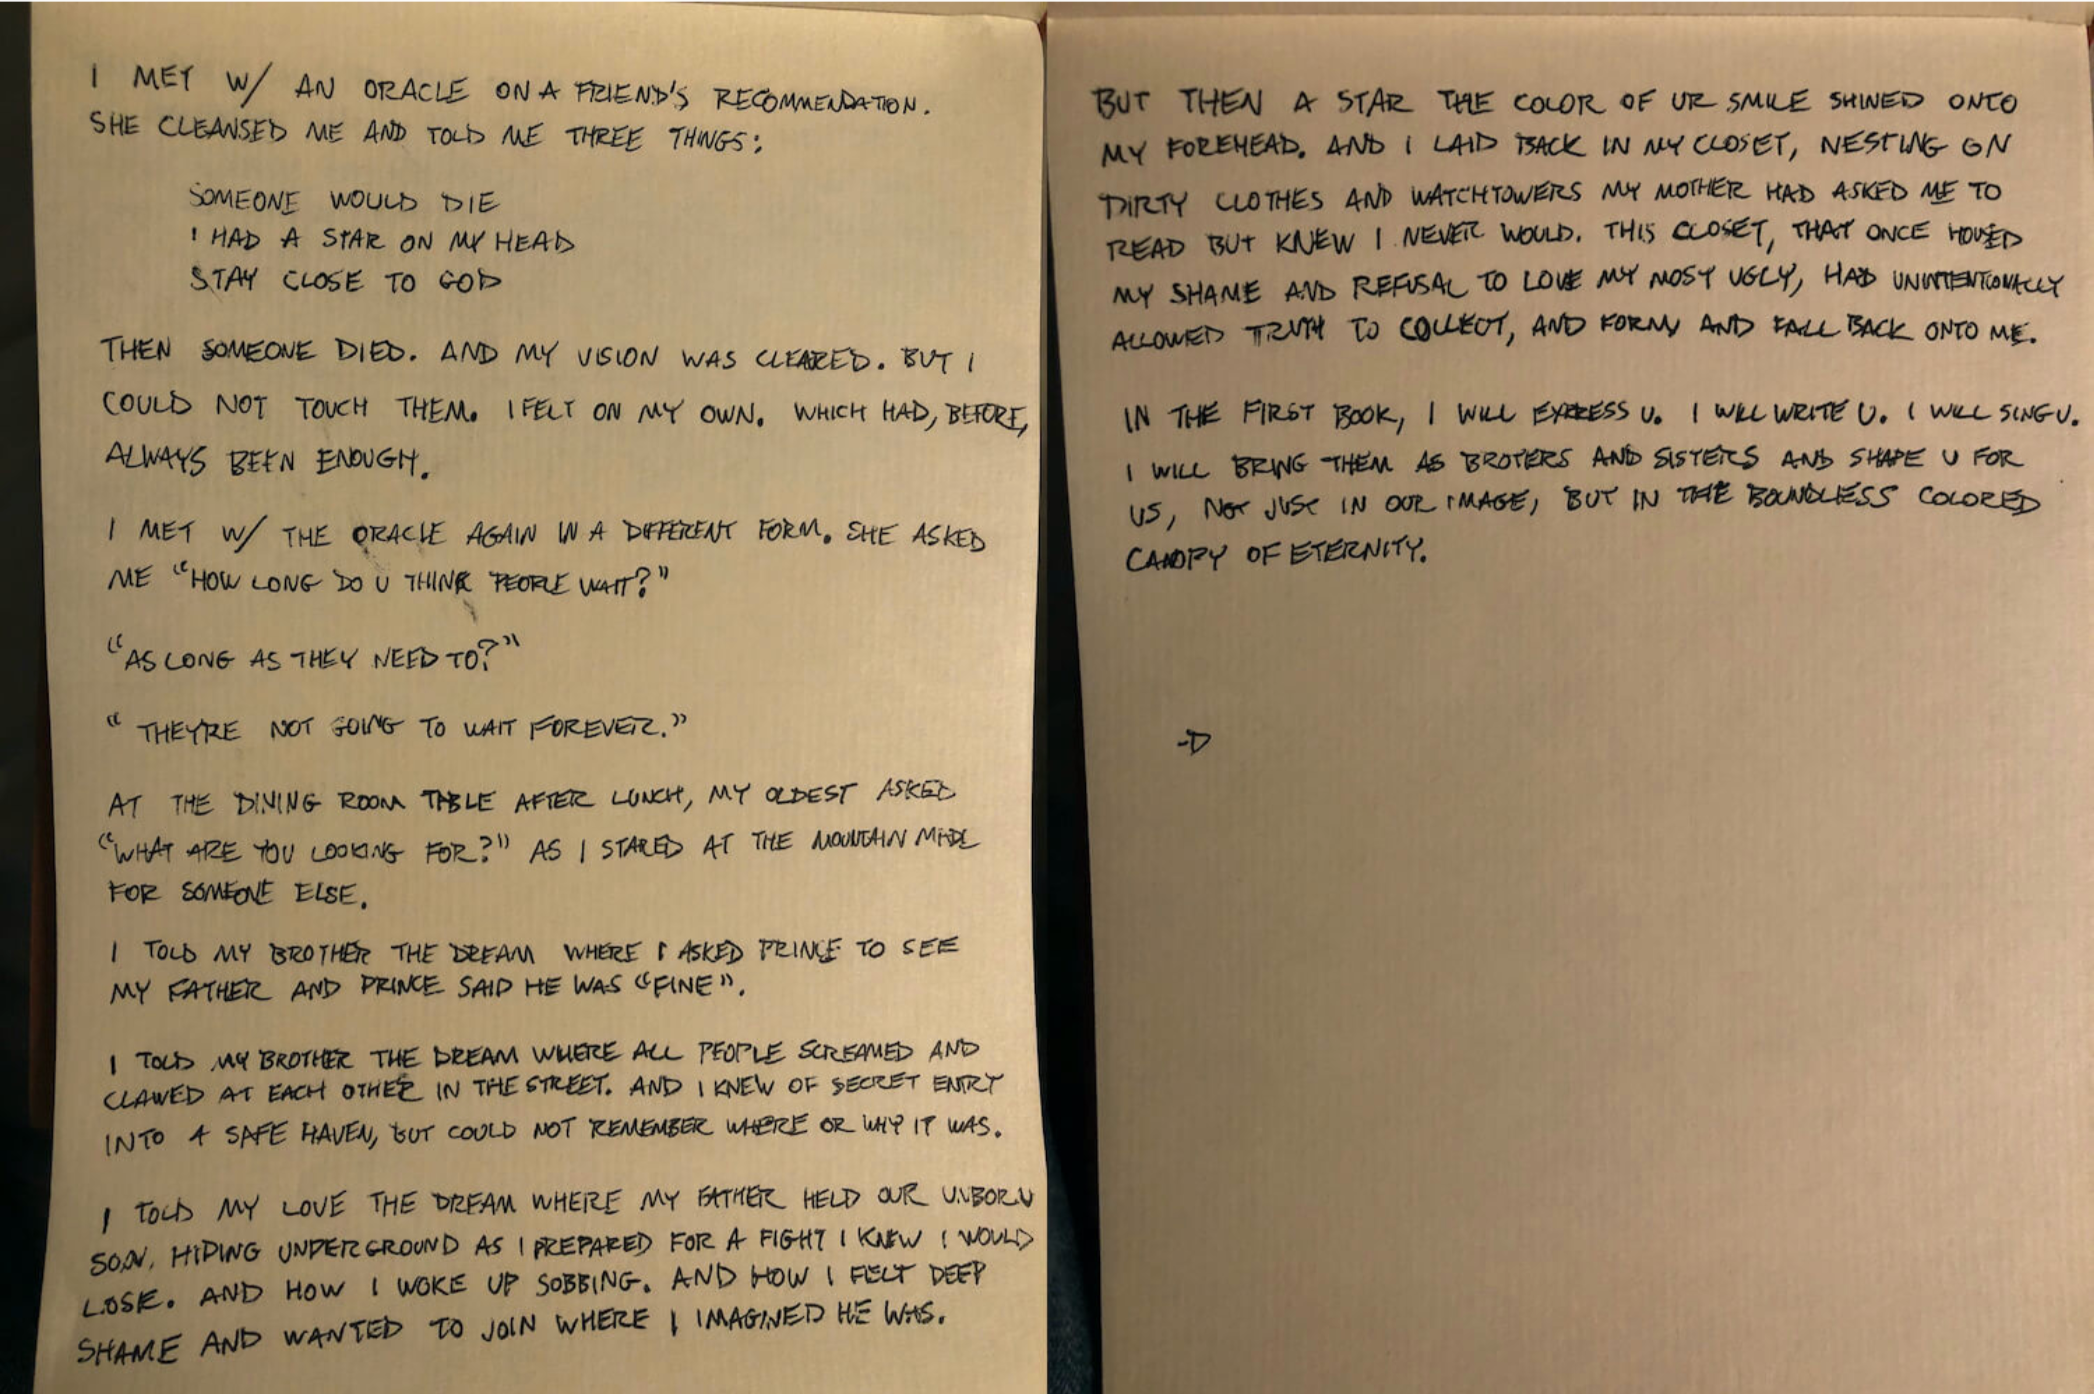 I MET W/ AN ORACLE ON A FRIEND'S RECOMMENDATION.
SHE CLEANSED ME AND TOLD ME THREE THINGS:
SOMEONE WOULD DIE
I HAD A STAR ON MY HEAD
STAY CLOSE TO GOD
THEN SOMEONE DIED. AND MY VISION WAS CLEARED. BUT I
COULD NOT TOUCH THEM. I FELT ON MY OWN. WHICH HAD, BEFORE,
ALWAYS BEEN ENOUGH.
I MET W/ THE ORACLE AGAIN IN A DIFFERENT FORM. SHE ASKED
ME "HOW LONG DO U THINK PEOPLE WAIT?"
"AS LONG AS THEY NEED TO?"
"THEY'RE NOT GOING TO WAIT FOREVER."
AT THE DINING ROOM TABLE AFTER LUNCH, MY OLDEST ASKED
"WHAT ARE YOU LOOKING FOR?" AS I STARED AT THE MOUNTAIN MADE
FOR SOMEONE ELSE.
I TOLD MY BROTHER THE DREAM WHERE I ASKED PRINCE TO SEE
MY FATHER AND PRINCE SAID HE WAS "FINE".
I TOLD MY BROTHER THE DREAM WHERE ALL PEOPLE SCREAMED AND
CLAWED AT EACH OTHER IN THE STREET. AND I KNEW OF SECRET ENTRY
INTO A SAFE HAVEN, BUT COULD NOT REMEMBER WHERE OR WHY IT WAS.
I TOLD MY LOVE THE DREAM WHERE MY FATHER HELD OUR UNBORN
SON, HIDING UNDERGROUND AS I PREPARED FOR A FIGHT I KNEW I WOULD
LOSE. AND HOW I WOKE UP SOBBING. AND HOW I FELT DEEP
SHAME AND WANTED TO JOIN WHERE I IMAGINED HE WAS.
BUT THEN A STAR THE COLOR OF UR SMILE SHINED ONTO
MY FOREHEAD. AND I LAID BACK IN MY CLOSET, NESTING ON
DIRTY CLOTHES AND WATCHTOWERS MY MOTHER HAD ASKED ME TO
READ BUT KNEW I NEVER WOULD. THIS CLOSET, THAT ONCE HOUSED
MY SHAME AND REFUSAL TO LOVE MY MOST UGLY, HAD UNINTENTIONALLY
ALLOWED TRUTH TO COLLECT, AND FORM, AND FALL BACK ONTO ME.
IN THE FIRST BOOK, I WILL EXPRESS U. I WILL WRITE U. I WILL SING U.
I WILL BRING THEM AS BROTERS AND SISTERS AND SHAPE U FOR
US, NOT JUST IN OUR IMAGE, BUT IN THE BOUNDLESS COLORED
CANOPY OF ETERNITY.
-D